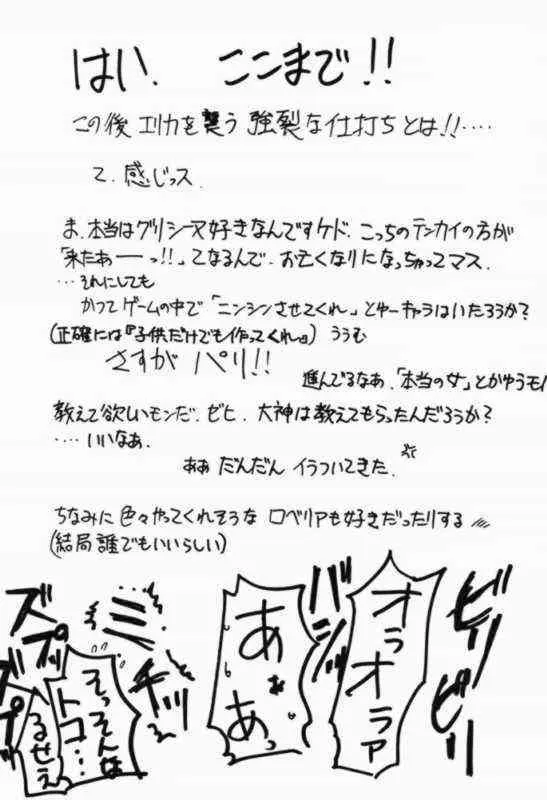 はい、ここまで!!
この後エリカを襲う強裂な仕打ちとは!!‥‥
て、感じっス、
ま、本当はグリシーヌ好きなんですケド、こっちのテンカイの方が
「来たあーっ!!」てなるんで、お亡くなりになっちゃってマス、
…それにしても
かつてゲームの中で「ニンシンさせてくれ」とゆーキャラはいたろうか?
(正確には『子供だけでも作ってくれ』) ううむ
さすが パリ!!
進んでるなあ、「本当の女」とかゆうモノ
教えて欲しいモンだ、ゼヒ、大神は教えてもらったんだろうか?
‥‥いいなあ、
ああ だんだん イラついてきた、
ちなみに色々やってくれそうな ロベリアも好きだったりする
(結局誰でもいいらしい)
ビリ
ビリ
オラオラァ
バシ
あぁあっ
ミチッ
そっそんな
トコ…
るせえ
ズプ
ズプ